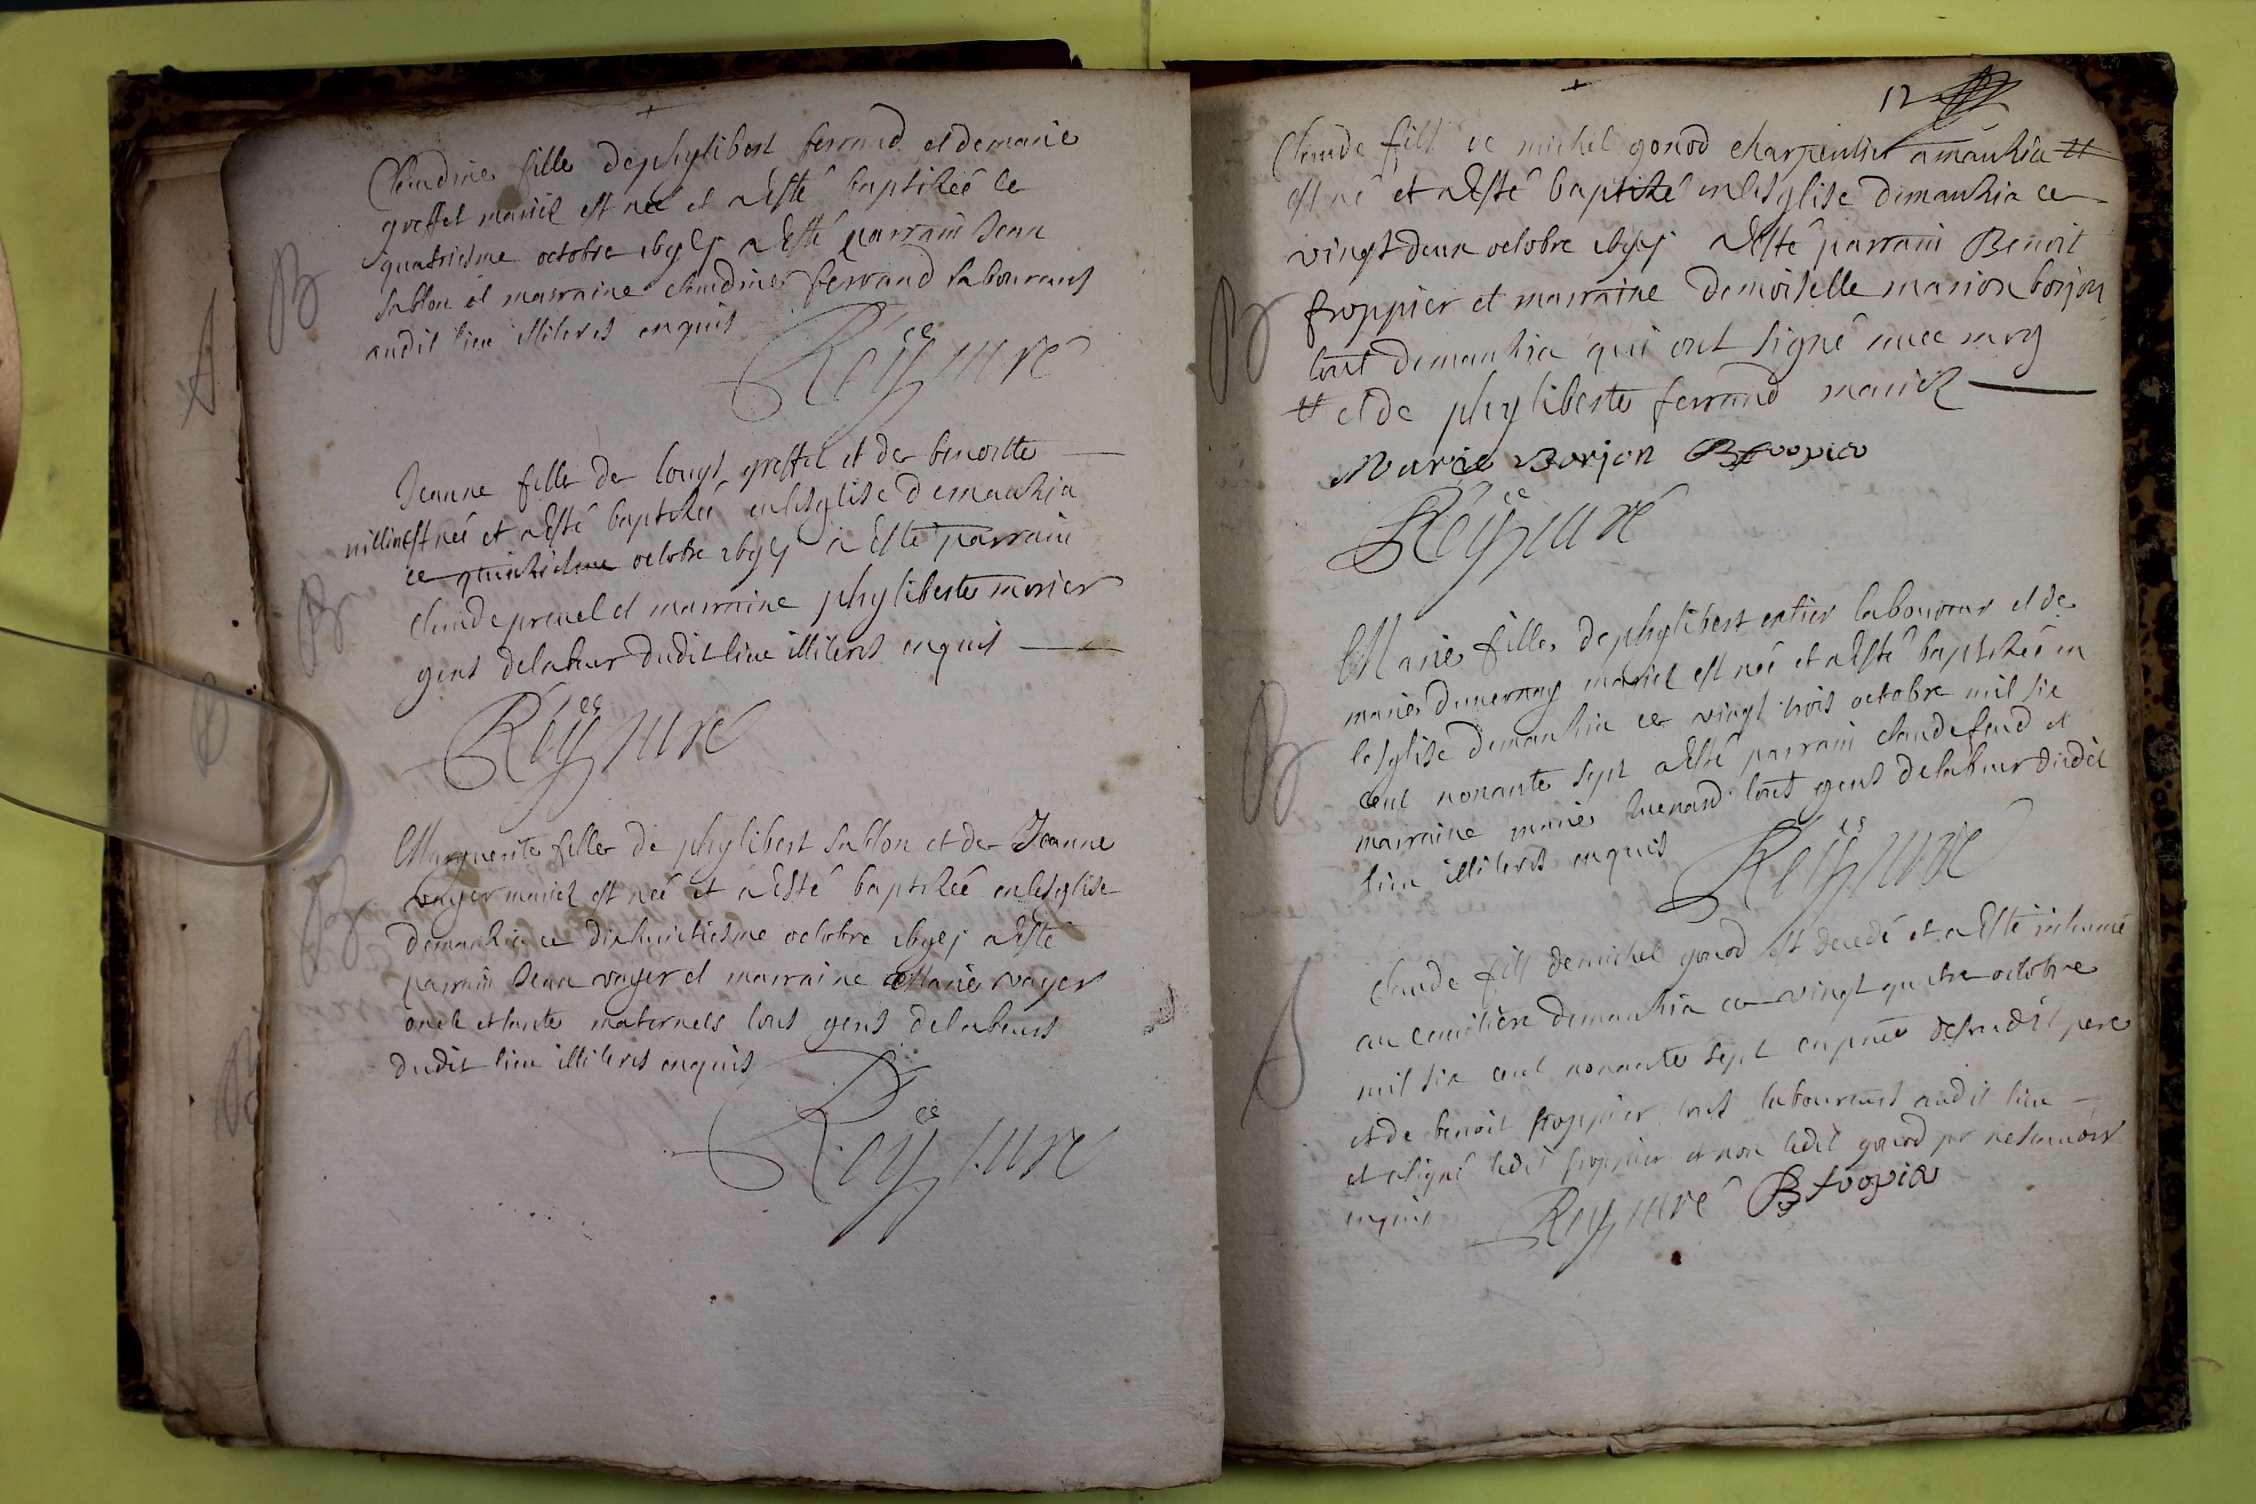 Claudine fille de phylibert ferrand et de marie
greffet mariez est neé et a Esté baptiseé ce
quatriesme octobre 1697 a Esté parrain Jean
Sablon et marraine claudine ferrand laboureurs
audit lieu illiteres enquis
B
Rey curé
Jeanne fille de Louys greffet et de benoitte
est neé et a Esté baptizeé en lesglise demanzia
ce quinziesme octobre 1697 a Esté parrain
claude prevel et marraine phyliberte morier
gens de labeur dudit lieu illiteres enquis
B
Rey curé
Marguerite fille de phylibert Sablon et de Jeanne
vayer mariez est neé et a Esté baptizeé en lesglise
demanzia ce dixhuictiesme octobre 1697 a Esté
parrain Jean vayer et marraine Marie vayer
oncle et tante maternels tous gens de labeurs
dudit lieu illiteres enquis
B
Rey curé
12
Claude fils de michel gonod charpentier a manzia #
est né et a Esté baptizé en lesglise demanzia ce
vingt deux octobre 1697 a Esté parrain Benoit
froppier et marraine Demoiselle marion borjon
tout demanzia qui ont signé avec moy
# et de phyliberte ferrand mariez
B
Marie Borjon B fropier
Rey curé
Marie fille de phylibert entier laboureur et de
marie Duvernay mariez est neé et a Esté baptizeé en
lesglise demanzia ce vingt trois octobre mil six
cent nonante sept a Esté parrain claude feud et
marraine marie tous gens de labeur dudit
lieu illiteres enquis
B
Rey curé
Claude fils de michel gonod est decedé et a Esté inhumé
au cemitière demanzia ce vingt quatre octobre
mil six cent nonante sept en pnce de sondit pere
et de benoit froppier tous laboureurs audit lieu
et a signé ledit froppier et non ledit gonod pr ne scavoir
enquis
S
Rey curé B fropier